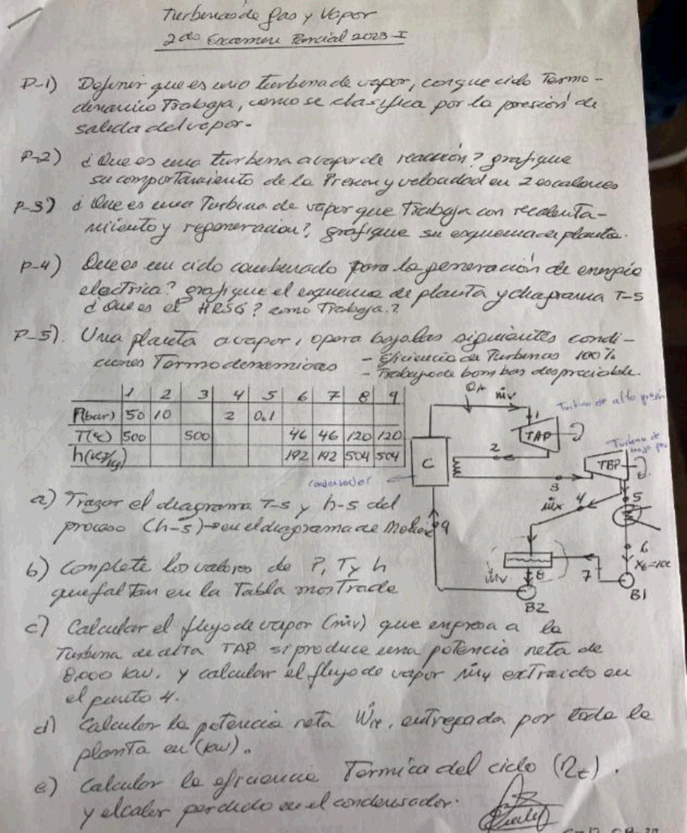 Turbinas de Gas y Vapor
2do Examen Parcial 2023-I
P-1) Definir que es una turbina de vapor, con que ciclo Termo-
dinamico Trabaja, como se clasifica por la presión de
salida del vapor.
P-2) ¿Que es una turbina a vapor de reacción? grafique
su comportamiento de la Presion y velocidad en 2 escalones
P-3) ¿ Que es una Turbina de vapor que Trabaja con recalenta-
miento y regeneracion?, grafique su esquema de planta.
P-4) Que es un ciclo combinado para la generación de energia
electrica? grafique el esquema de planta y diagrama T-S
¿ Que es el HRSG? como Trabaja.?
P-5). Una planta a vapor, opera bajo las siguientes condi-
ciones Termodinamicas - Eficiencia de Turbinas 100%
- Trabajo de bombas despreciable.
1 2 3 4 5 6 7 8 9
P(bar) 50 10 2 0.1
T(°C) 500 500 46 46 120 120
h(kJ/kg) 192 192 504 504
QA ṁv
Turbina de alta
1
TAP
2
Turbina de
C
TBP
3
condensador
ṁx 4
5
6
7
8
9
ṁv
B2
B1
a) Trazar el diagrama T-S y h-s del
proceso (h-s)→en el diagrama de
b) Complete los valores de P, T y h
que faltan en la Tabla mostrada
c) Calcular el flujo de vapor (ṁv) que ingresa a la
Turbina de alta TAP si produce una potencia neta de
8,000 kw. y calcular el flujo de vapor extraido en
el punto 4.
d) Calcular la potencia neta entregada por toda la
planta en (kw).
e) Calcular la eficiencia Termica del ciclo (ηt).
y el calor perdido en el condensador.